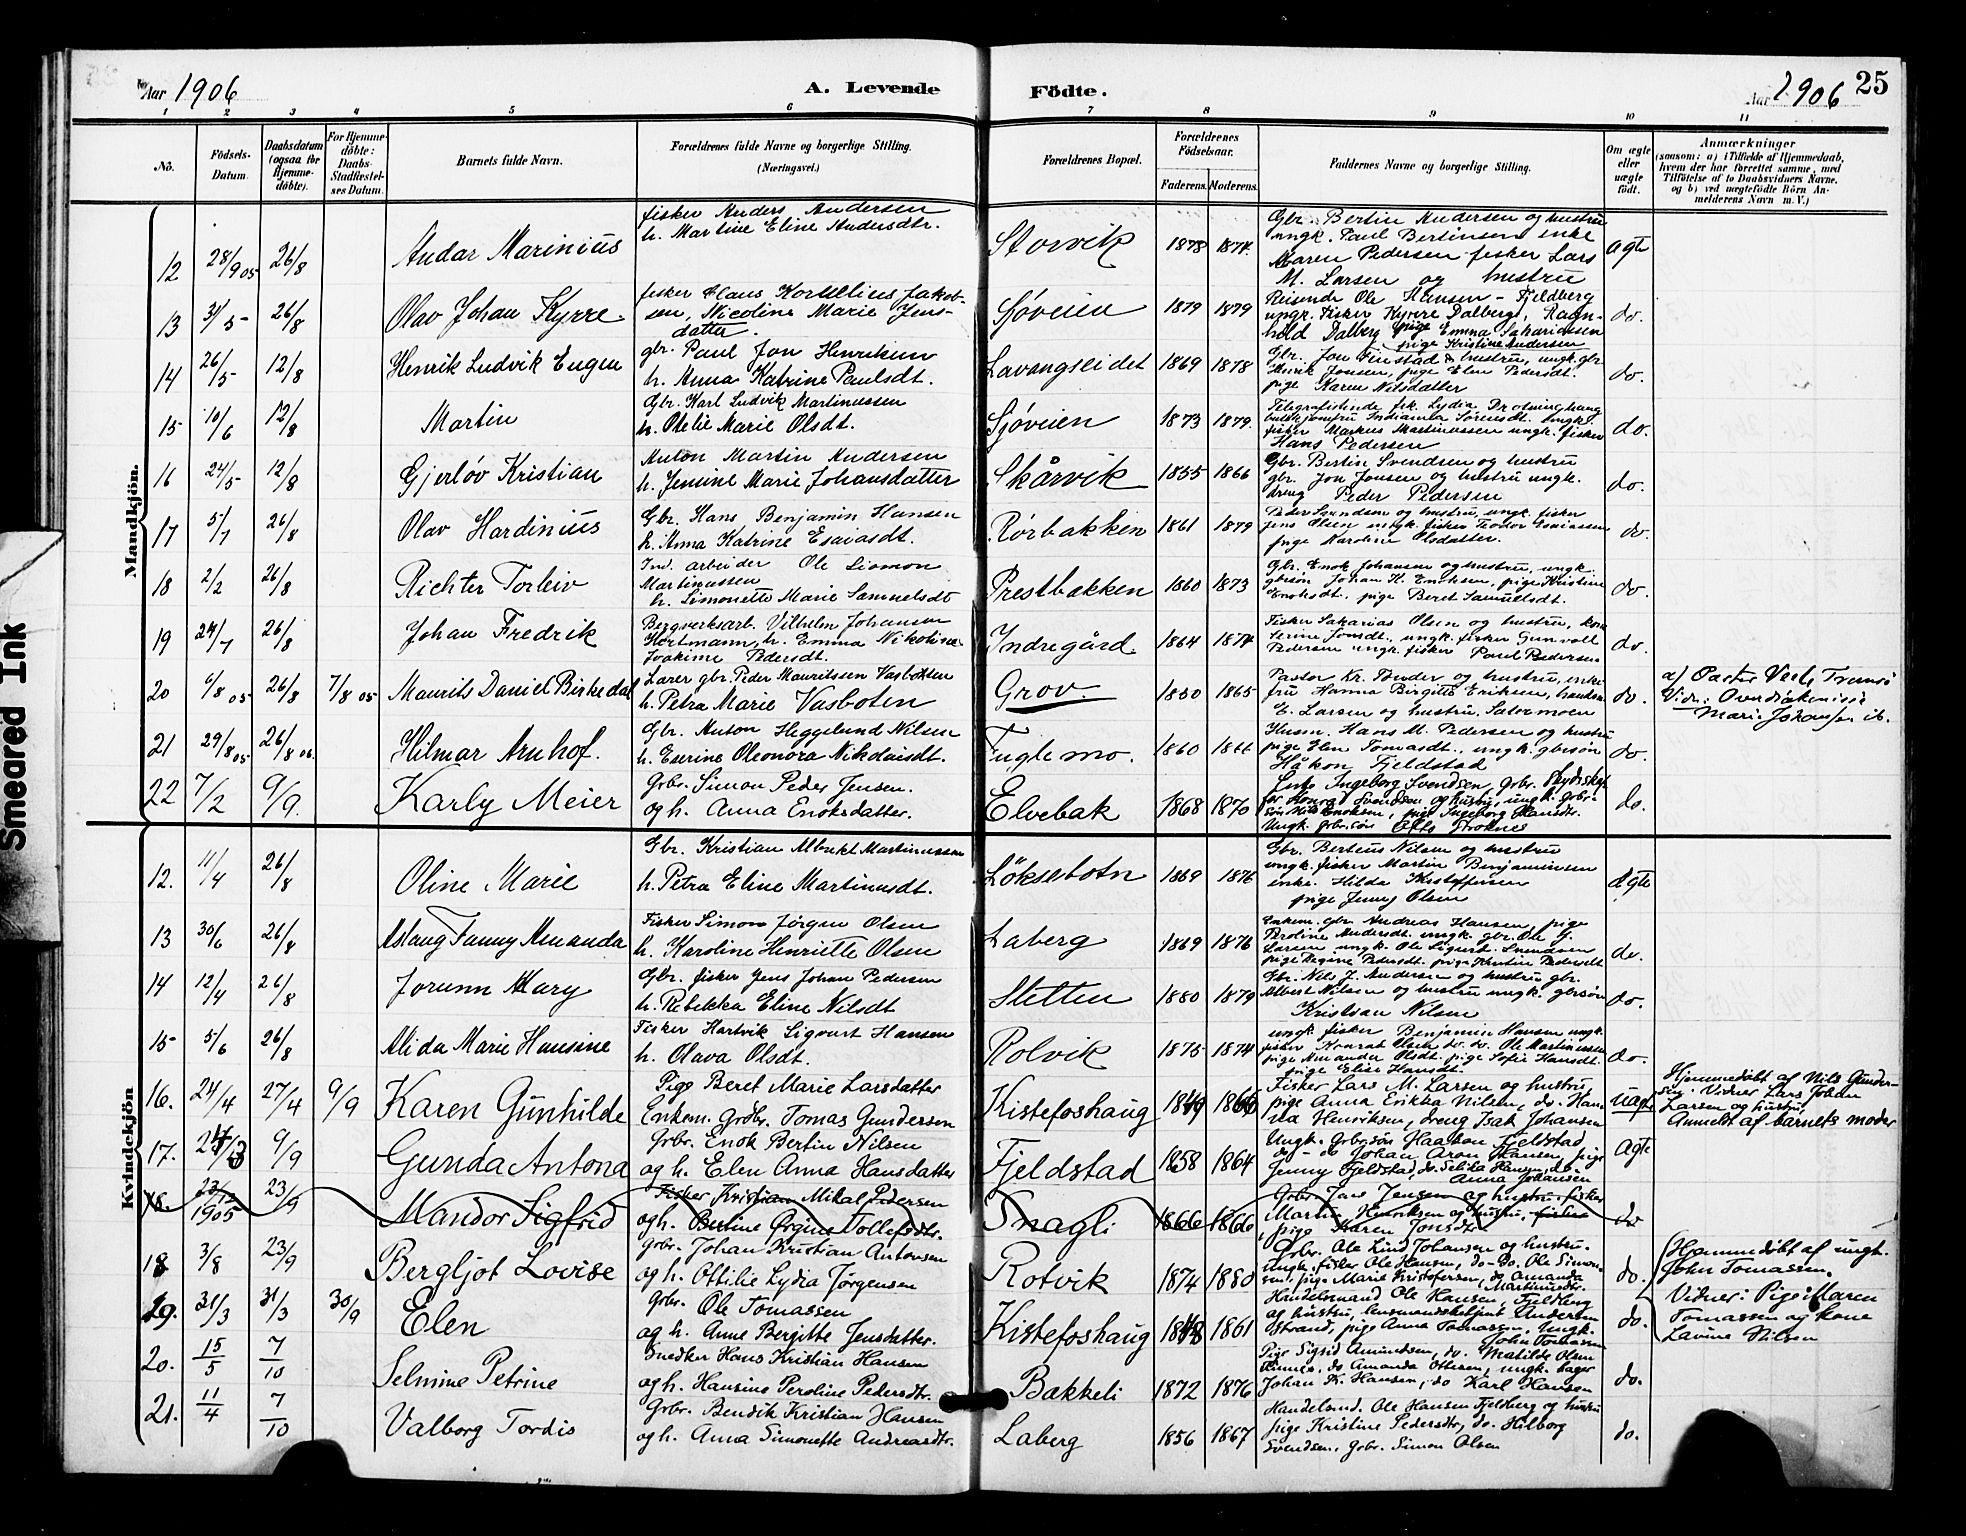 Aar 1906
A. Levende Födte.
Aar 1906
25
1 2 3 4 5 6 7 8 9 10 11
No.
Födsels-Datum.
Daabsdatum (ogsaa for Hjemme-döbte).
For Hjemme-döbte: Daabs-Stadfæstel-ses Datum.
Barnets fulde Navn.
Forældrenes fulde Navne og borgerlige Stilling. (Næringsvei.)
Forældrenes Bopæl.
Forældrenes Födselsaar.
Faderens. Moderens.
Faddernes Navne og borgerlige Stilling.
Om ægte eller uægte födt.
Anmærkninger
(saasom: a) i Tilfælde af Hjemmedaab, hvem der har forrettet samme, med Tilföielse af to Daabsvidners Navne, og b) ved uægtefödte Börn An-melderens Navn m. V.)
Mandkjön.
12 28/9 05 26/8 Andar Marinius fisker Anders Andersen
h. Martine Eline Andersdtr. Storvik 1878 1874. Gbr. Bertin Andersen og hustru
ungk. Paul Bertinsen enke
Maren Pedersen fisker Lars
M. Larsen og hustru ægte
13 31/5 26/8 Olav Johan Kyrre fisker Claus Kornelius Jakob-
sen, Nicoline Marie Jens-
datter. Sjøveien 1879 1879 Reisende Ole Hansen - Fjeldberg
ungk. fisker Kyrre Dalberg, Ragn-
hild Dalberg pige Emma Sakariassen
pige Kristine Andersen do.
14 26/5 12/8 Henrik Ludvik Eugen gbr. Paul Jon Henriksen
h. Anna Katrine Paulsdt. Lavangseidet 1869 1878 Gbr. Jon Finstad & hustru, ungk. gbr
Henrik Jonsen, pige Elen Pedersdt.
pige Karen Nilsdatter do.
15 10/6 12/8 Martin Gbr. Karl Ludvik Martinussen
h. Otelie Marie Olsdt. Sjøveien 1873 1879. Telegrafistinde frk. Lydia
fisker Markus Martinussen ungk. fisker
Hans Pedersen do.
16 24/5 12/8 Gjerløv Kristian Anton Martin Andersen
h. Jensine Marie Johansdatter Skårvik 1855 1866 Gbr. Bertin Svendsen og hustru
gbr. Jon Jonsen og hustru ungk.
dreng Peder Pedersen do.
17 5/7 26/8 Olav Hardinius Gbr. Hans Benjamin Hansen
h. Anna Katrine Esaiasdt. Rörbakken 1861 1879 og hustru, ungk. fisker
Jens Olsen ungk. fisker Teodor Esaiassen
pige Karoline Olsdatter. do.
18 2/2 26/8 Richter Torleiv Ind. arbeider Ole Siomon
Martinussen
h. Simonette Marie Samuelsdt Prestbakken 1860 1873 Gbr. Enok Johansen og hustru, ungk.
gbrsön Johan H. Enoksen, pige Kristine
Enoksdt. pige Beret Samuelsdt. do.
19 24/7 26/8 Johan Fredrik Bergverksarb. Vilhelm Johansen
Hortmann, h. Emma Nikoline
Joakime Pedersdt. Indregård 1864 1874 Fisker Sakarias Olsen og hustru, kone
Serine Jonsdt., ungk. fisker Gunvald
Pedersen ungk. fisker Paul Pedersen do.
20 6/8 05 26/8 7/8 05 Maurits Daniel Birkedal Lærer gbr. Peder Mauritssen Vasbotten
h. Petra Marie Vasboten Grov. 1850 1865 Pastor Kr. Tender og hustru, enke-
fru Hanna Birgitte Eriksen, handelsm.
E. Larsen og hustru, Salvermoen do. a) Pastor Vesle Tromsö
Vidn: Overdiakonisse
Marie Johansen ib.
21 29/8 05 26/8 06. Hilmar Arnhof. Gbr. Anton Heggelund Nilsen
h. Eserine Oleonora Nikolaisdt. Fuglemo. 1860 1866 Husm. Hans M. Pedersen og hustru
pige Elen Tomasdt., ungk. gbrsön
Håkon Fjeldstad do.
22 7/2 9/9. Karly Meier Grbr. Simon Peder Jensen.
og h. Anna Enoksdatter. Elvebak 1868 1870 Enke Ingeborg Svendsen, Grbr. Skydsskaf-
fer Konrad Svendsen og hustru, ungk. Grbr-
sön Nils Enoksen, pige Ingeborg Hansdtr.
Ungk. Grbr.sön Atts Stroknes do.
Kvindekjön
12. 11/4 26/8 Oline Marie Gbr. Kristian Albrekt Martinussen
h. Petra Eline Martinusdt. Löksebotn 1869 1876 Gbr. Berteus Nilsen og hustru
ungk. fisker Martin Benjaminsen
enke. Hilda Kristoffersen
pige Jenny Olsen ægte
13 30/6 26/8 Aslaug Fanny Amanda Fisker Simon Jörgen Olsen
h. Karoline Henriette Olsen Laberg 1869 1876 Enkem. gbr. Andreas Hansen, pige
Peroline Andersdt. ungk. gbr. Ole G.
Larsen ungk. Ole Sigurt.
pige Regine Pedersdt. pige Kristine Pedersdt. do.
14 12/4 26/8 Jorunn Mary Gbr. fisker Jens Johan Pedersen
h. Rebekka Eline Nilsdt Stetten 1880 1879 Gbr. Nils J. Andersen og hustru gbr.
Albert Nilsen og hustru ungk. gbrsön
Kristian Nilsen do.
15 5/6 26/8 Alida Marie Hansine Fisker Hartvik Sigvart Hansen
h. Olava Olsdt. Rolvik 1875 1874 ungk. fisker Benjamin Hansen ungk.
fisker Konrat Olsen do. do. Ole Martinussen
pige Amanda Olsdt. pige Sofie Hansdt.
pige Elise Hansdt. do.
16. 24/4 27/4 9/9 Karen Gunhilde Pige Beret Marie Larsdatter
Enkem. Grdbr. Tomas Gundersen Kistefoshaug 1849 1866 Fisker Lars M. Larsen og hustru,
pige Anna Erikka Nilsen, do. Han-
na Henriksen, dreng Isak Johansen uægte Hjemmedöbt af Nils Gunder-
sen. Vidner Lars Johan
Larsen og hustru,
Anmeldt af barnets moder
17. 24/3 9/9 Gunda Antona Grbr. Enok Bertin Nilsen
og h. Elen Anna Hansdatter Fjeldstad 1858 1864 Ungk. Grbr.sön Haakon Fjeldstad
do - do Johan Aron Hansen, pige
Jenny Fjeldstad, do. Selika Hansen, do.
Anna Johansen Ægte
18. 23/12 1905 23/9 Mandor Sigfrid Fisker Kristian Mikal Pedersen
og h. Bertine Örgine Tollefsdtr. Snagli 1866 1866 Grbr. Lars Jensen og hustru. fisker
Martin Henriksen og hustru, fisker
pige Karen Jonsdtr do
18 3/8 23/9 Bergljot Lovise Grbr. Johan Kristian Antonsen
og h. Ottilie Lydia Jørgensen Rotvik 1874 1880 Grbr. Ole Lind Johansen og hustru.
ungk. fisker Ole Hansen, do - do. Ole Simon-
sen, pige Marie Kristofersen, do. Amanda
Martinusdtr. do.
19. 31/3 31/3 30/9 Elen Grbr. Ole Tomassen
og h. Anne Bergitte Jensdatter. Kistefoshaug 1848 1861 Handelsmand Ole Hansen, Fjeldberg
og hustru, lensmandsbetjent Andersen
Strand, pige Anna Tomassen, Ungk.
John Tomassen do. Hjemmedöbt af ungk.
John Tomassen.
Vidner: Pige Maren
Tomassen og kone
Lavine Nilsen
20. 15/5 7/10 Selmine Petrine Snedker Hans Kristian Hansen
og h. Hansine Peroline Pedersdtr. Bakkeli 1872 1876 Pige Sigrid Amundsen, do. Matilde Olsen
do Amanda Ottesen, ungk. bager
Johan K. Hansen, do Karl Hansen do.
21. 11/4 7/10 Valborg Tordis Grbr. Bendik Kristian Hansen
og h. Anna Simonette Andreasdtr. Laberg 1856 1867 Handelsmd. Ole Hansen Fjeldberg og hustru
pige Kristine Pedersdtr, do. Hilborg
Svendsen, Grbr. Simon Olsen do.
Smeared Ink